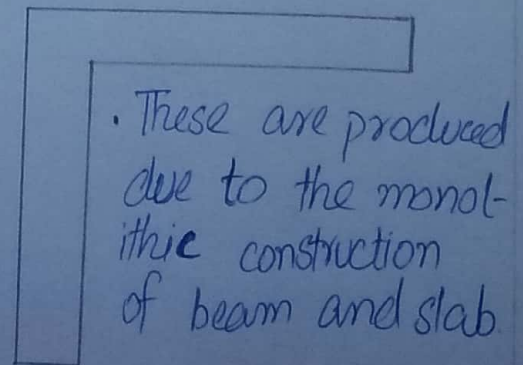 . These are produced
due to the monol-
ithic construction
of beam and slab